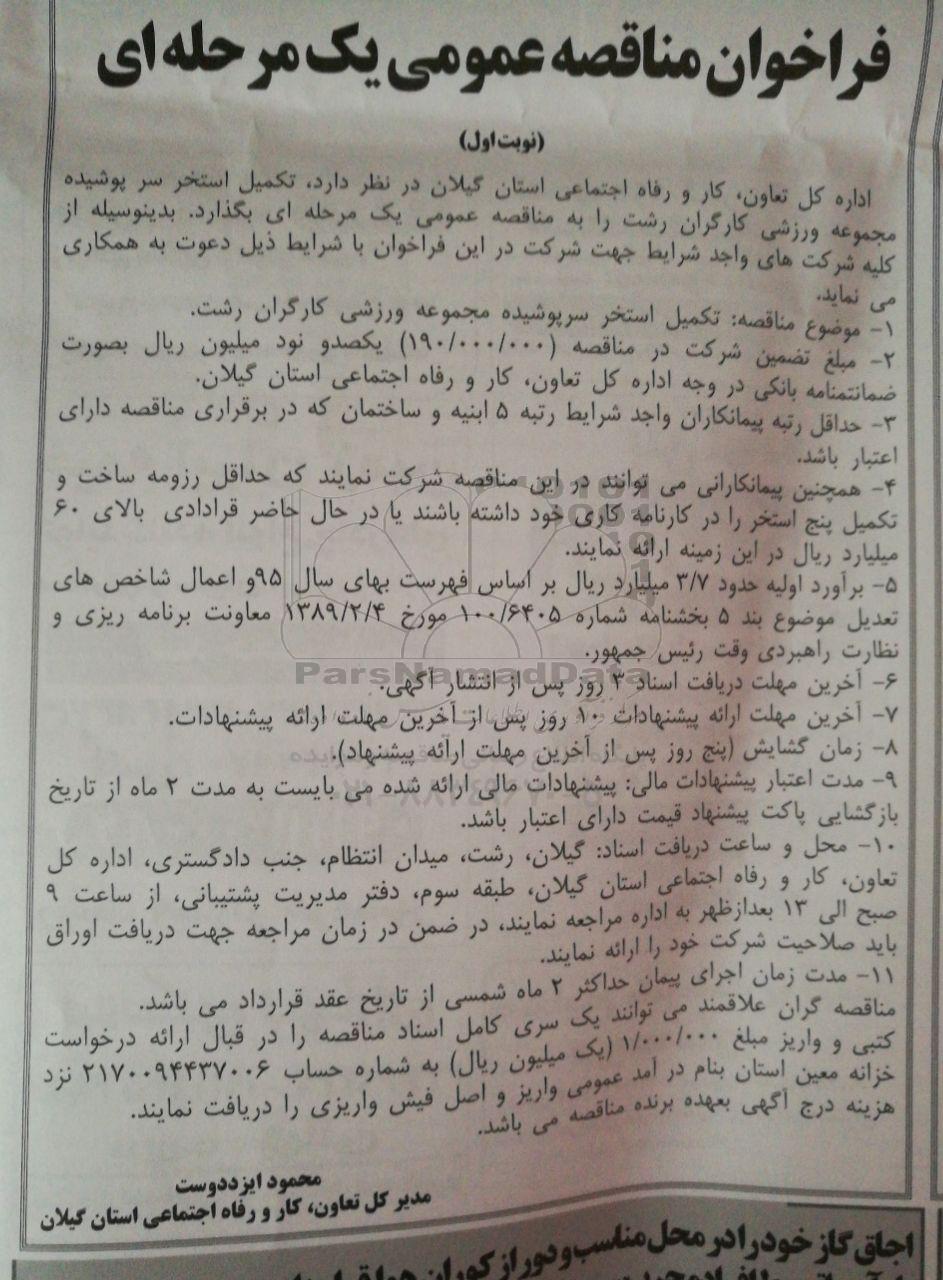 فراخوان مناقصه عمومی یک مرحله ای
(نوبت اول)
اداره کل تعاون، کار و رفاه اجتماعی استان گیلان در نظر دارد، تکمیل استخر سر پوشیده
مجموعه ورزشی کارگران رشت را به مناقصه عمومی یک مرحله ای بگذارد. بدینوسیله از
کلیه شرکت های واجد شرایط جهت شرکت در این فراخوان با شرایط ذیل دعوت به همکاری
می نماید.
۱- موضوع مناقصه: تکمیل استخر سرپوشیده مجموعه ورزشی کارگران رشت.
۲- مبلغ تضمین شرکت در مناقصه (۱۹۰/۰۰۰/۰۰۰) یکصدو نود میلیون ریال بصورت
ضمانتمنامه بانکی در وجه اداره کل تعاون، کار و رفاه اجتماعی استان گیلان.
۳- حداقل رتبه پیمانکاران واجد شرایط رتبه ۵ ابنیه و ساختمان که در برقراری مناقصه دارای
اعتبار باشد.
۴- همچنین پیمانکارانی می توانند در این مناقصه شرکت نمایند که حداقل رزومه ساخت و
تکمیل پنج استخر را در کارنامه کاری خود داشته باشند یا در حال حاضر قرادادی بالای ۶۰
میلیارد ریال در این زمینه ارائه نمایند.
۵- برآورد اولیه حدود ۳/۷ میلیارد ریال بر اساس فهرست بهای سال ۹۵و اعمال شاخص های
تعدیل موضوع بند ۵ بخشنامه شماره ۱۰۰/۶۴۰۵ مورخ ۱۳۸۹/۲/۴ معاونت برنامه ریزی و
نظارت راهبردی وقت رئیس جمهور.
ParsNamadData
۶- آخرین مهلت دریافت اسناد ۳ روز پس از انتشار آگهی.
۷- آخرین مهلت ارائه پیشنهادات ۱۰ روز پس از آخرین مهلت ارائه پیشنهادات.
۸- زمان گشایش (پنج روز پس از آخرین مهلت ارائه پیشنهاد).
۹- مدت اعتبار پیشنهادات مالی: پیشنهادات مالی ارائه شده می بایست به مدت ۲ ماه از تاریخ
بازگشایی پاکت پیشنهاد قیمت دارای اعتبار باشد.
۱۰- محل و ساعت دریافت اسناد: گیلان، رشت، میدان انتظام، جنب دادگستری، اداره کل
تعاون، کار و رفاه اجتماعی استان گیلان، طبقه سوم، دفتر مدیریت پشتیبانی، از ساعت ۹
صبح الی ۱۳ بعدازظهر به اداره مراجعه نمایند، در ضمن در زمان مراجعه جهت دریافت اوراق
باید صلاحیت شرکت خود را ارائه نمایند.
۱۱- مدت زمان اجرای پیمان حداکثر ۲ ماه شمسی از تاریخ عقد قرارداد می باشد.
مناقصه گران علاقمند می توانند یک سری کامل اسناد مناقصه را در قبال ارائه درخواست
کتبی و واریز مبلغ ۱/۰۰۰/۰۰۰ (یک میلیون ریال) به شماره حساب ۲۱۷۰۰۹۴۴۳۷۰۰۶ نزد
خزانه معین استان بنام در آمد عمومی واریز و اصل فیش واریزی را دریافت نمایند.
هزینه درج آگهی بعهده برنده مناقصه می باشد.
محمود ایزددوست
مدیر کل تعاون، کار و رفاه اجتماعی استان گیلان
اجاق گاز خود را در محل مناسب و دور از کوران